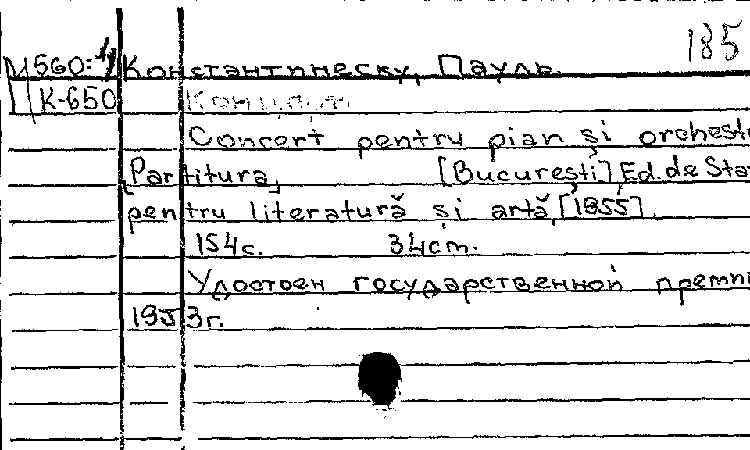 185
М560:4 Константинеску, Пауль.
К-650 Концерт
Concert pentru pian și orchest
[Partitura] [București], Ed. de Sta
pentru literatură și artă, [1955].
154с. 34cm.
Удостоен государственной преми
1953г.